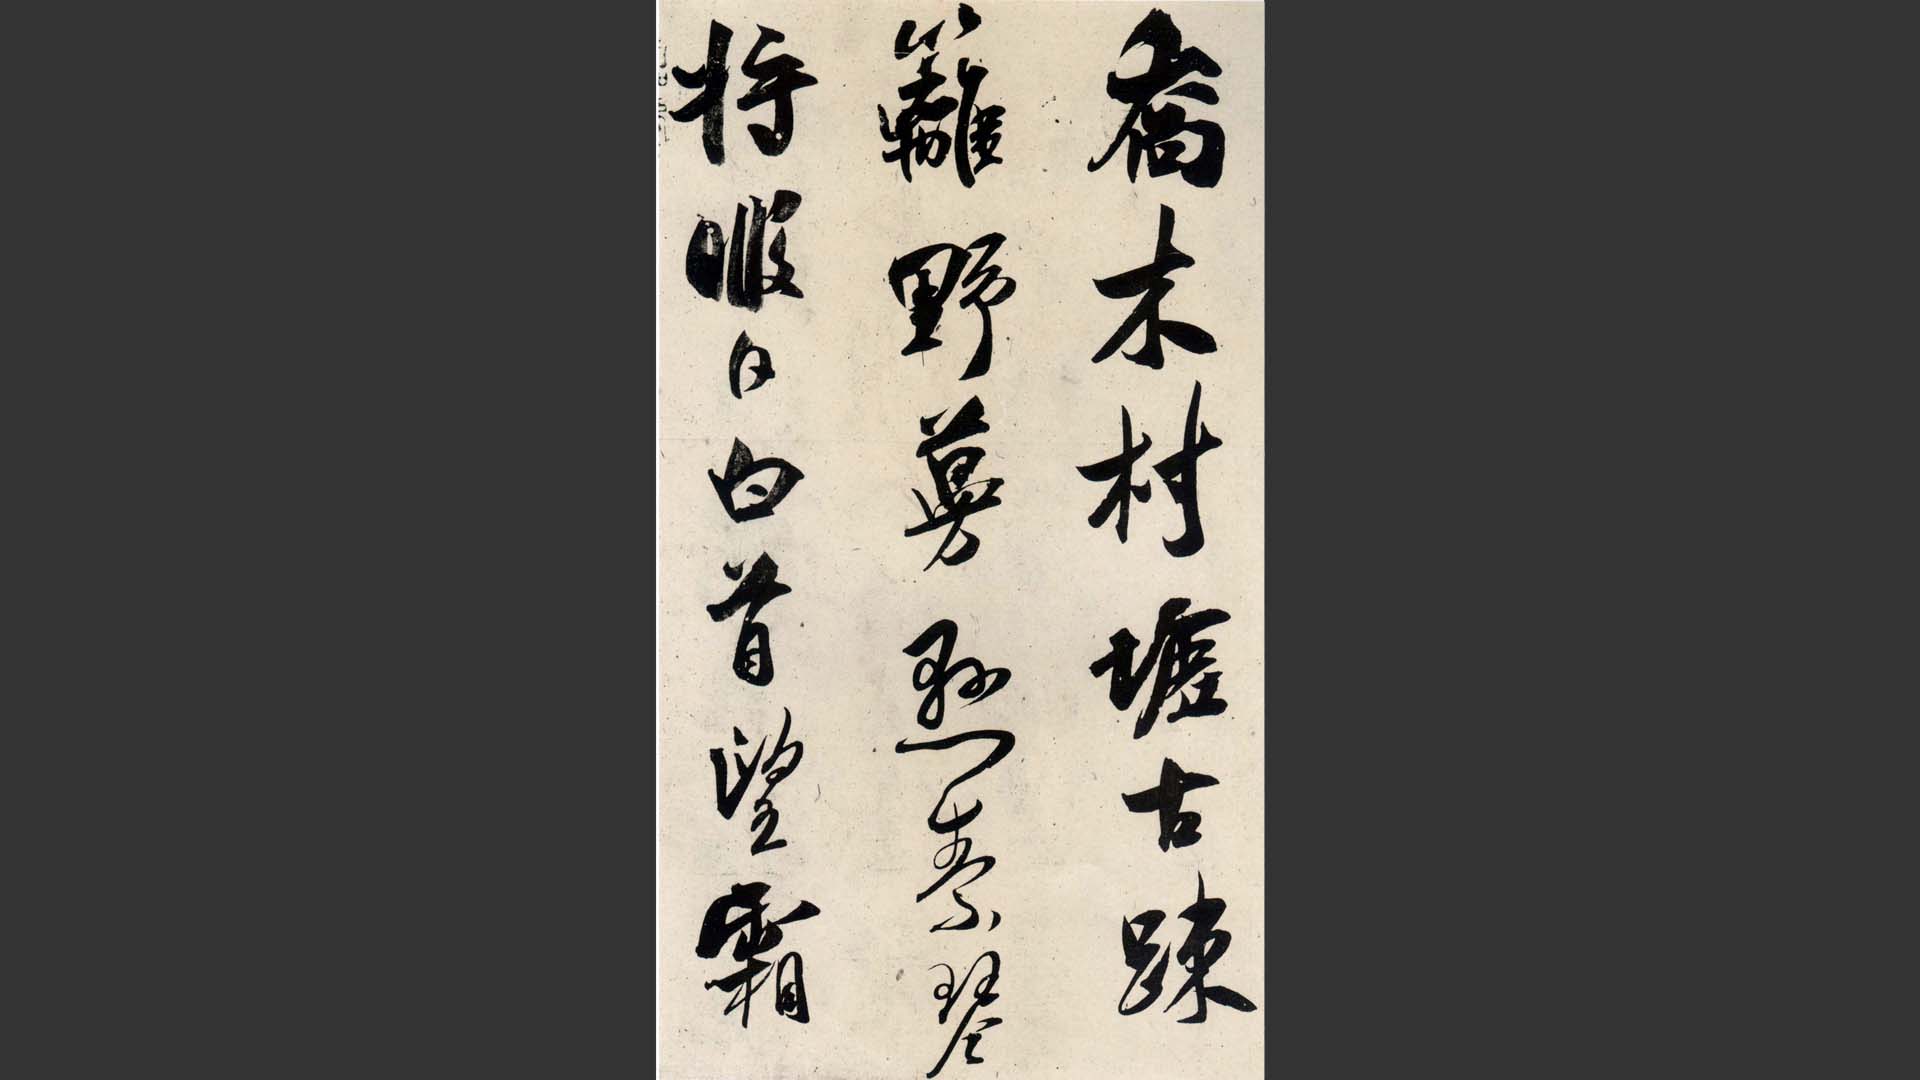 喬木村墟古踈
籬野蔓懸素琴
将暇日白首望霜